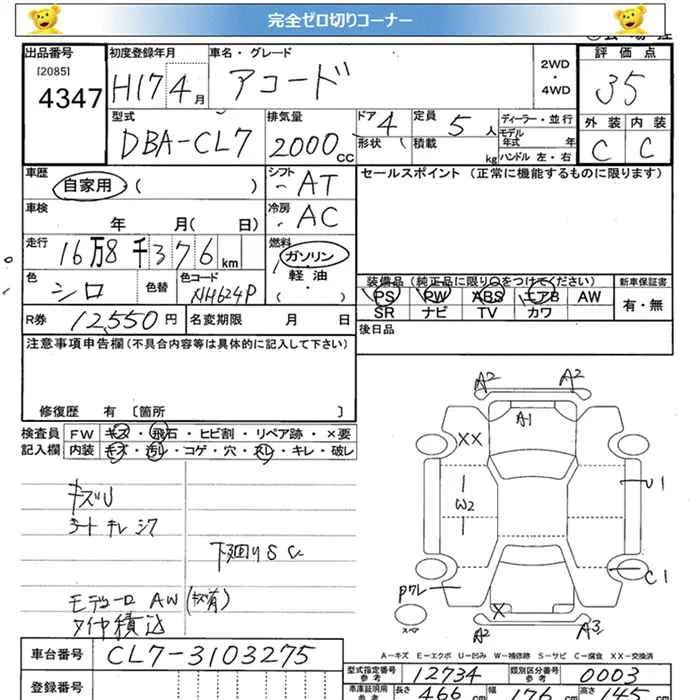 完全ゼロ切りコーナー
出品番号
[2085]
4347
初度登録年月
H17 4月
車名・グレード
アコード
2WD
・
4WD
評価点
3.5
外装 内装
C C
型式
DBA-CL7
排気量
2000cc
ドア 4
形状 (
定員 5人
積載 kg
ディーラー・並行
モデル
年式 年
ハンドル 左・右
車歴
自家用・( )
シフト
・AT
セールスポイント(正常に機能するものに限ります)
車検
年 月( 日)
冷房
・AC
走行
16万8千376km
燃料
ガソリン
軽油
( ・ )
色
シロ
色替
色コード
NH624P
装備品(純正品に限り○をつけてください)
PS PW ABS エアB AW
SR ナビ TV カワ
新車保証書
有・無
R券 12,550円
名変期限 月 日
後日品
注意事項申告欄(不具合内容等は具体的に記入して下さい)
修復歴 有 〔箇所 〕
検査員 FW キズ・飛石・ヒビ割・リペア跡・×要
記入欄 内装 キズ・汚レ・コゲ・穴・スレ・キレ・破レ
キズU
シートキレ シワ
下廻りSC
モデューロ AW
タイヤ積込
A2 A2
A1
XX
W2
U1
C1
P7L
X
A2 A3
スペア
A-キズ E-エクボ U-凹み W-補修跡 S-サビ C-腐食 XX-交換済
車台番号 CL7-3103275
型式指定番号
参考
12734
類別区分番号
参考
0003
登録番号
車庫証明用
参考
長さ 466 cm 幅 176 cm 高さ 145 cm